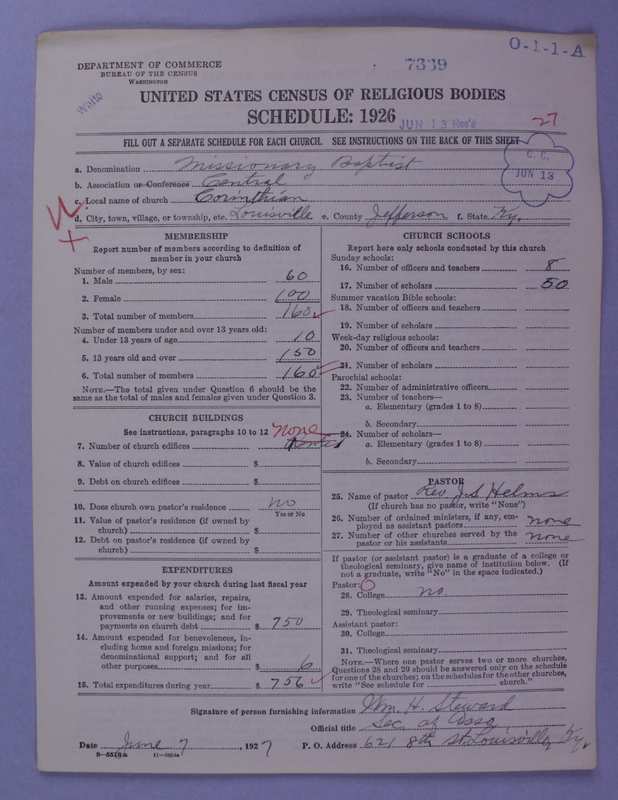 O-1-1-A
7339
DEPARTMENT OF COMMERCE
BUREAU OF THE CENSUS
WASHINGTON
White
UNITED STATES CENSUS OF RELIGIOUS BODIES
SCHEDULE: 1926
JUN 13 Rec'd
27
FILL OUT A SEPARATE SCHEDULE FOR EACH CHURCH. SEE INSTRUCTIONS ON THE BACK OF THIS SHEET
C. C.
JUN 13
a. Denomination Missionary Baptist
b. Association or Conference Central
c. Local name of church Corinthian
d. City, town, village, or township, etc. Louisville e. County Jefferson f. State Ky.
MEMBERSHIP
Report number of members according to definition of
member in your church
Number of members, by sex:
1. Male 60
2. Female 100
3. Total number of members 160
Number of members under and over 13 years old:
4. Under 13 years of age 10
5. 13 years old and over 150
6. Total number of members 160
NOTE.—The total given under Question 6 should be the
same as the total of males and females given under Question 3.
CHURCH BUILDINGS
See instructions, paragraphs 10 to 12 none
7. Number of church edifices Rented
8. Value of church edifices $
9. Debt on church edifices $
10. Does church own pastor's residence no
Yes or No
11. Value of pastor's residence (if owned by
church) $
12. Debt on pastor's residence (if owned by
church) $
EXPENDITURES
Amount expended by your church during last fiscal year
13. Amount expended for salaries, repairs,
and other running expenses; for im-
provements or new buildings; and for
payments on church debt $ 750
14. Amount expended for benevolences, in-
cluding home and foreign missions; for
denominational support; and for all
other purposes $ 6
15. Total expenditures during year $ 756
CHURCH SCHOOLS
Report here only schools conducted by this church
Sunday schools:
16. Number of officers and teachers 8
17. Number of scholars 50
Summer vacation Bible schools:
18. Number of officers and teachers
19. Number of scholars
Week-day religious schools:
20. Number of officers and teachers
21. Number of scholars
Parochial schools:
22. Number of administrative officers
23. Number of teachers—
a. Elementary (grades 1 to 8)
b. Secondary
24. Number of scholars—
a. Elementary (grades 1 to 8)
b. Secondary
PASTOR
25. Name of pastor Rev. J. S. Helms
(If church has no pastor, write "None")
26. Number of ordained ministers, if any, em-
ployed as assistant pastors none
27. Number of other churches served by the
pastor or his assistants none
If pastor (or assistant pastor) is a graduate of a college or
theological seminary, give name of institution below. (If
not a graduate, write "No" in the space indicated.)
Pastor:
28. College no
29. Theological seminary
Assistant pastor:
30. College
31. Theological seminary
NOTE.—Where one pastor serves two or more churches,
Questions 28 and 29 should be answered only on the schedule
for one of the churches; on the schedules for the other churches,
write "See schedule for church."
Signature of person furnishing information Wm. H. Steward
Official title Sec. of Assn
Date June 7, 1927 P. O. Address 621 8th St. Louisville, Ky.